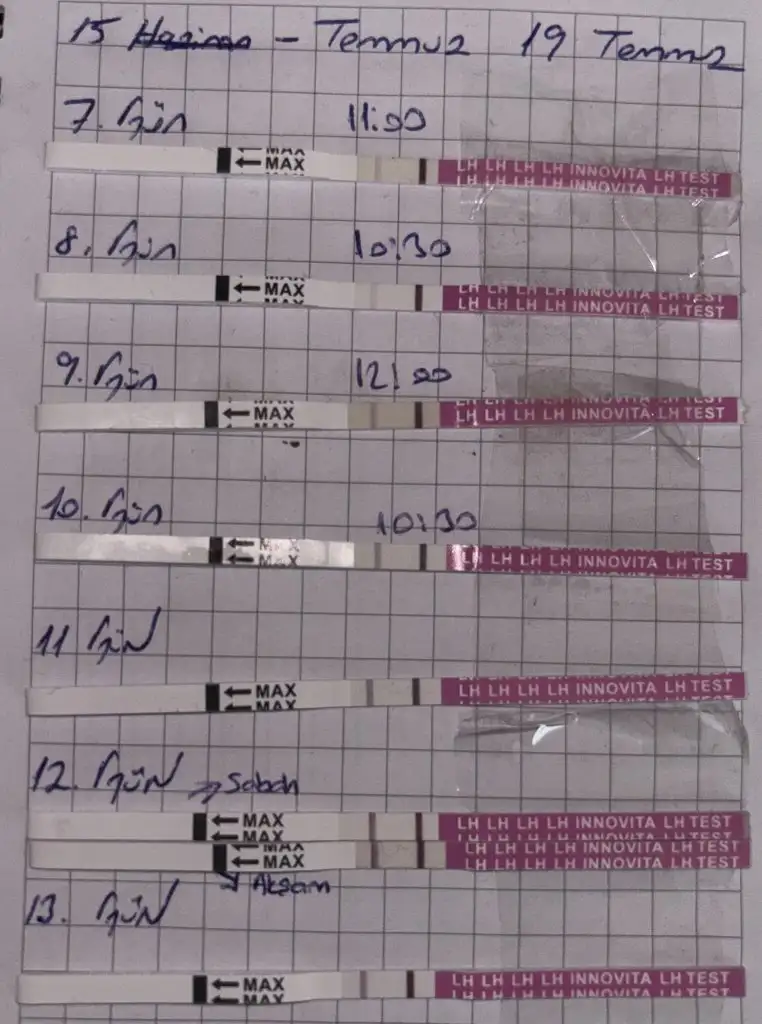 15 Haziran - Temmuz 19 Temmz
7. Gün 11:00
MAX
← MAX
LH LH LH LH INNOVITA LH TEST
LH LH LH LH INNOVITA LH TEST
8. Gün 10:30
← MAX
MAX
LH LH LH LH INNOVITA LH TEST
LH LH LH LH INNOVITA LH TEST
9. Gün 12:00
← MAX
MAX
LH LH LH LH INNOVITA LH TEST
10. Gün 10:30
← MAX
← MAX
LH LH LH LH INNOVITA LH TEST
11 GÜN
← MAX
← MAX
LH LH LH LH INNOVITA LH TEST
12. GÜN → Sabah
← MAX
← MAX
LH LH LH LH INNOVITA LH TEST
LH LH LH LH INNOVITA LH TEST
MAX
← MAX
LH LH LH LH INNOVITA LH TEST
LH LH LH LH INNOVITA LH TEST
→ Akşam
13. GÜN
← MAX
← MAX
LH LH LH LH INNOVITA LH TEST
LH LH LH LH INNOVITA LH TEST